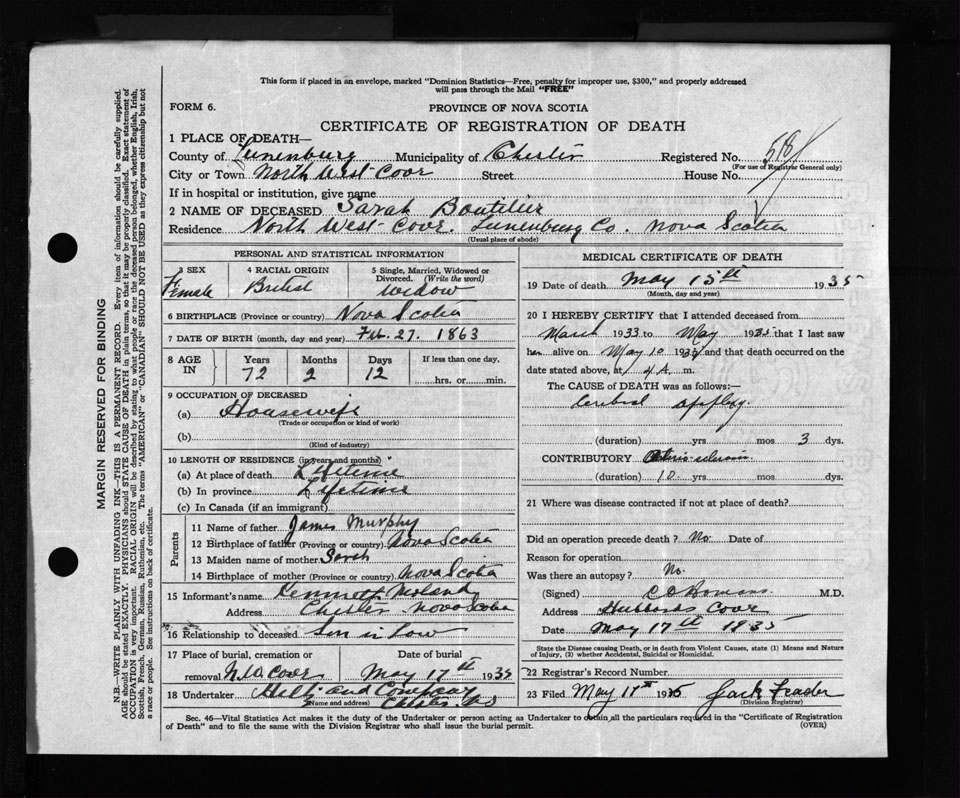 This form if placed in an envelope, marked "Dominion Statistics—Free, penalty for improper use, $300," and properly addressed
will pass through the Mail "FREE"
FORM 6.
PROVINCE OF NOVA SCOTIA
CERTIFICATE OF REGISTRATION OF DEATH
1 PLACE OF DEATH—
County of Lunenburg Municipality of Chester Registered No. 518
(For use of Registrar General only)
City or Town North West Cove Street House No.
If in hospital or institution, give name
2 NAME OF DECEASED Sarah Boutilier
Residence North West Cove. Lunenburg Co. Nova Scotia
(Usual place of abode)
PERSONAL AND STATISTICAL INFORMATION
3 SEX Female
4 RACIAL ORIGIN British
5 Single, Married, Widowed or Divorced. (Write the word) Widow
6 BIRTHPLACE (Province or country) Nova Scotia
7 DATE OF BIRTH (month, day and year) Feb. 27. 1863
8 AGE IN Years 72 Months 2 Days 12 If less than one day, hrs. or min.
9 OCCUPATION OF DECEASED
(a) Housewife
(Trade or occupation or kind of work)
(b)
(Kind of industry)
10 LENGTH OF RESIDENCE (in years and months)
(a) At place of death Lifetime
(b) In province Lifetime
(c) In Canada (if an immigrant)
Parents
11 Name of father James Murphy
12 Birthplace of father (Province or country) Nova Scotia
13 Maiden name of mother Sarah
14 Birthplace of mother (Province or country) Nova Scotia
15 Informant's name Kenneth
Address Chester Nova Scotia
16 Relationship to deceased Son in Law
17 Place of burial, cremation or removal N.W. Cove Date of burial May 17th 1935
18 Undertaker Hilts and Company
(Name and address) Chester NS
MEDICAL CERTIFICATE OF DEATH
19 Date of death May 15th 1935
(Month, day and year)
20 I HEREBY CERTIFY that I attended deceased from
March 1933 to May 1935 that I last saw
her alive on May 10 1935 and that death occurred on the
date stated above, at 4 A. m.
The CAUSE OF DEATH was as follows:—
Cerebral Apoplexy.
(duration) yrs mos 3 dys.
CONTRIBUTORY
(duration) 10 yrs. mos dys.
21 Where was disease contracted if not at place of death?
Did an operation precede death? No. Date of
Reason for operation
Was there an autopsy? No.
(Signed) M.D.
Address Hubbards Cove
Date May 17th 1935
State the Disease causing Death, or in death from Violent Causes, state (1) Means and Nature
of Injury, (2) whether Accidental, Suicidal or Homicidal.
22 Registrar's Record Number
23 Filed May 1935 Jack
(Division Registrar)
Sec. 46—Vital Statistics Act makes it the duty of the Undertaker or person acting as Undertaker to obtain all the particulars required in the "Certificate of Registration
of Death" and to file the same with the Division Registrar who shall issue the burial permit. (OVER)
MARGIN RESERVED FOR BINDING
N.B.—WRITE PLAINLY WITH UNFADING INK—THIS IS A PERMANENT RECORD. Every item of information should be carefully supplied.
AGE should be stated EXACTLY. PHYSICIANS should STATE CAUSE OF DEATH in plain terms, so that it may be properly classified. Exact statement of
OCCUPATION is very important. RACIAL ORIGIN will be described by stating to what people or race the deceased person belonged, whether English, Irish,
Scottish, French, German, Russian, Ruthenian, etc. The terms "AMERICAN" or "CANADIAN" SHOULD NOT BE USED as they express citizenship but not
a race or people. See instructions on back of certificate.